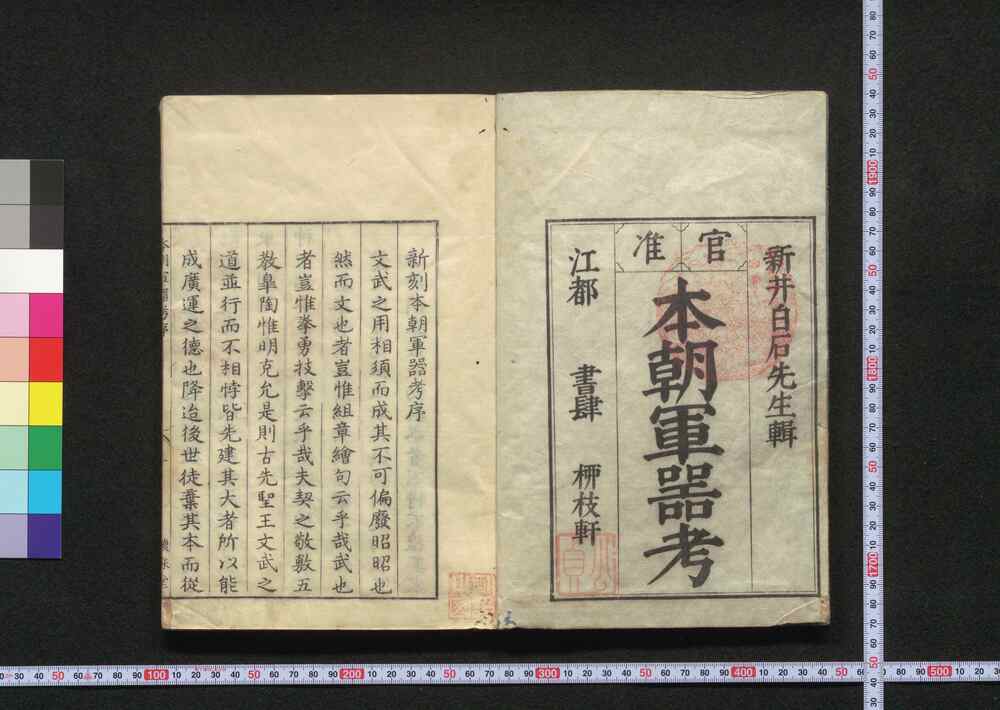 新井白石先生輯
官准
本朝軍器考
江都 書肆 栁枝軒
新刻本朝軍器考序
文武之用相須而成其不可偏廢昭昭也
然而文也者豈惟組章繪句云乎哉武也
者豈惟拳勇技擊云乎哉夫契之敬敷五
教臯陶惟明克允是則古先聖王文武之
道並行而不相悖皆先建其大者所以能
成廣運之德也降迨後世徒棄其本而從